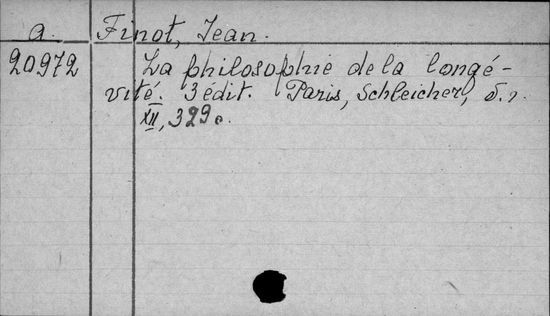 a. Finot, Jean.
20972 La philosophie de la longé-
vité. 3 édit. Paris, Schleicher, б.г.
XII, 329 с.